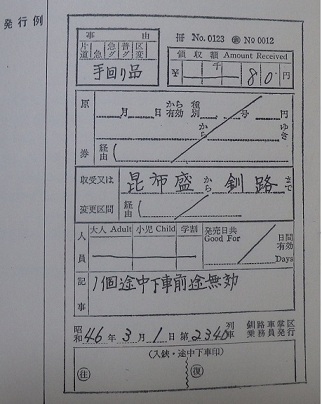 発行例
事由
片道 急 普急 グ 区変
手回り品
冊 No. 0123 ㊎ No 0012
領収額 Amount Received
¥ 千 80円
原券
月 日から有効 種別 号 円
から ゆき
経由(
取受又は変更区間
昆布盛から釧路まで
経由(
人員
大人 Adult 小児 Child 学割
発売日共 Good For 日間有効 Days
記事
1個途中下車前途無効
昭和46年3月1日第234D列車
釧路車掌区乗務員発行
(入鋏・途中下車印)
(往) (復)